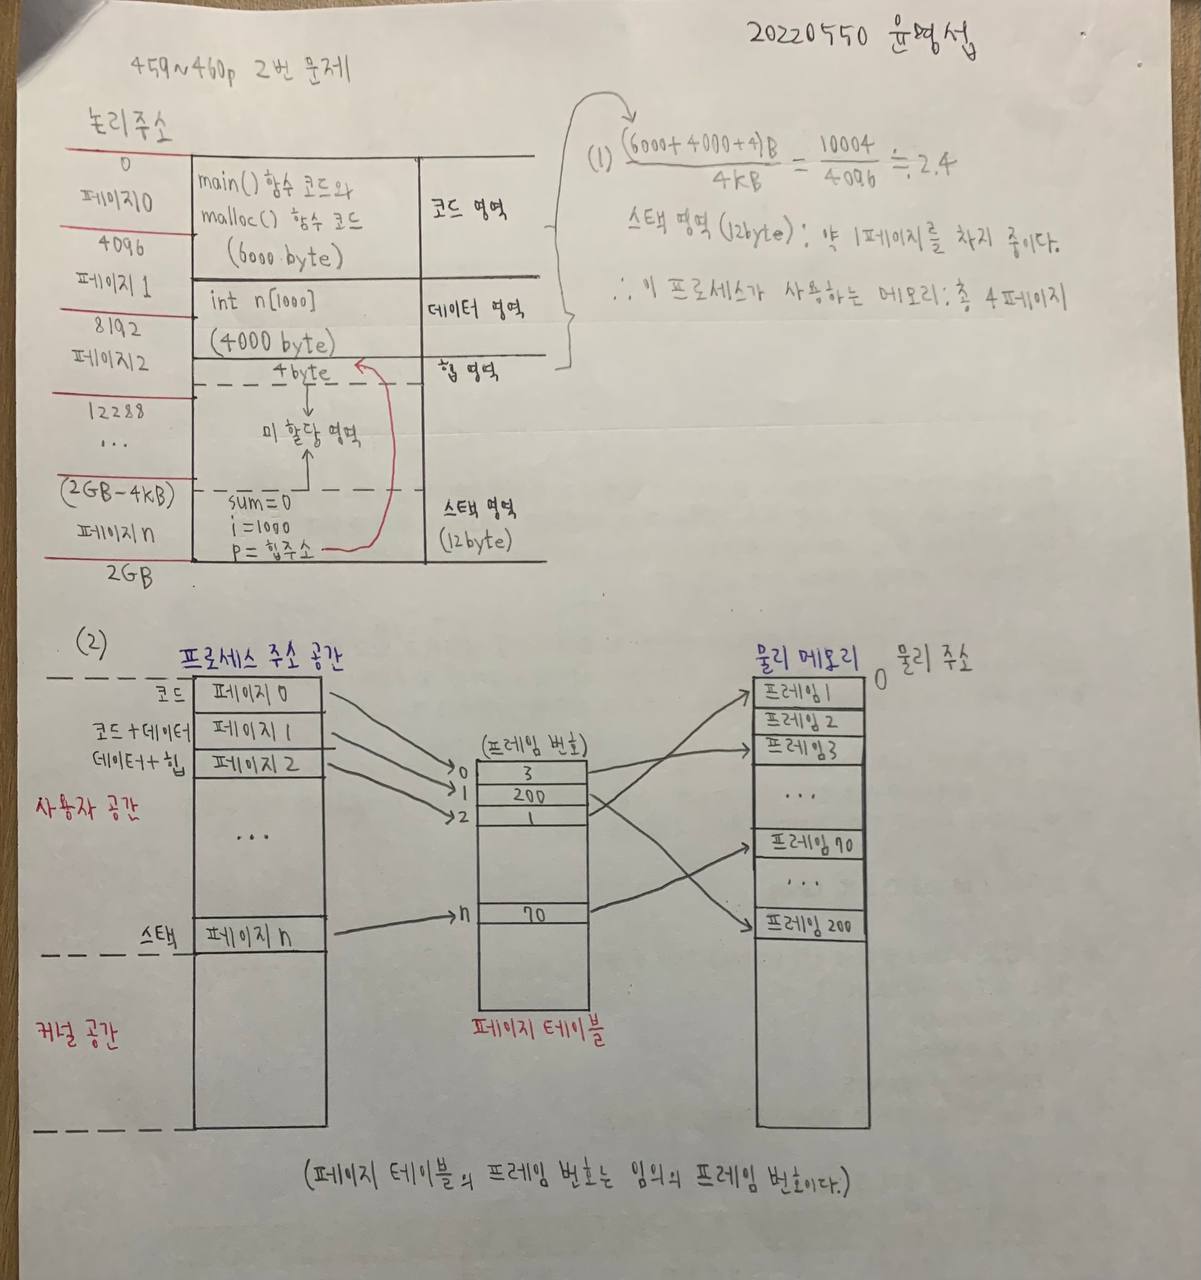 20220550 윤영섭
459~460p 2번 문제
논리주소
0
페이지0
4096
페이지 1
8192
페이지2
12288
...
(2GB-4KB)
페이지n
2GB
main() 함수 코드와
malloc() 함수 코드
(6000 byte)
코드 영역
int n[1000]
(4000 byte)
데이터 영역
4byte
힙 영역
미 할당 영역
sum=0
i=1000
p= 힙주소
스택 영역
(12byte)
(1) (6000+4000+4)B / 4KB = 10004 / 4096 ≒ 2.4
스택 영역 (12byte) : 약 1페이지를 차지 중이다.
∴ 이 프로세스가 사용하는 메모리 : 총 4페이지
(2)
프로세스 주소 공간
물리 메모리
물리 주소
0
코드
페이지 0
코드+데이터
페이지 1
데이터+힙
페이지 2
사용자 공간
...
스택
페이지 n
커널 공간
(프레임 번호)
0 3
1 200
2 1
n 70
페이지 테이블
프레임 1
프레임 2
프레임3
...
프레임 70
...
프레임 200
(페이지 테이블의 프레임 번호는 임의의 프레임 번호이다.)